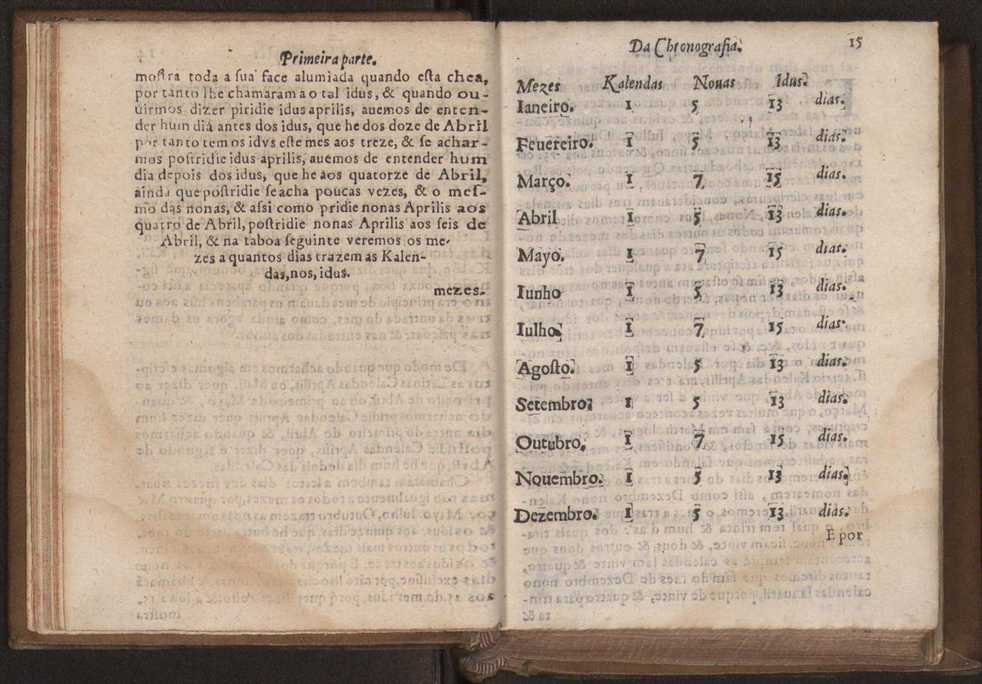 Primeira parte.
moſtra toda a ſua face alumiada quando eſta chea,
por tanto lhe chamaram ao tal idus, & quando ou-
uirmos dizer piridie idus aprilis, auemos de enten-
der hum diá antes dos idus, que he dos doze de Abril
por tanto temos idvs eſte mes aos treze, & ſe achar-
mos poſtridie idus aprilis, auemos de entender hum
dia depois dos idus, que he aos quatorze de Abril,
ainda que poſtridie ſe acha poucas vezes, & o meſ-
mo das nonas, & aſsi como pridie nonas Aprilis aos
quatro de Abril, poſtridie nonas Aprilis aos ſeis de
Abril, & na taboa ſeguinte veremos os me-
zes a quantos dias trazem as Kalen-
das, nos, idus.
mezes.
Da Chronografia. 15
Mezes Kalendas Nouas Idus.
Ianeiro. 1 5 13 dias.
Feuereiro. 1 5 13 dias.
Março. 1 7 15 dias.
Abril 1 5 13 dias.
Mayo. 1 7 15 dias.
Iunho 1 5 13 dias.
Iulho. 1 7 15 dias.
Agoſto. 1 5 13 dias.
Setembro. 1 5 13 dias.
Outubro. 1 7 15 dias.
Nouembro. 1 5 13 dias.
Dezembro. 1 5 13 dias.
E por